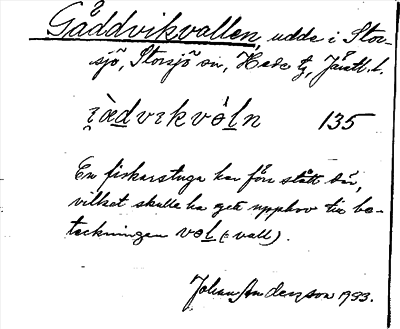 Gåddvikvallen, udde i Stor-
sjö, Storsjö sn, Hede tg, Jämtl. l.
i̯ὰdvikvὸln 135
En fiskarstuga har förr stått där,
vilket skulle ha gett upphov till be-
teckningen vol (= vall).
Johan Anderzson 1933.